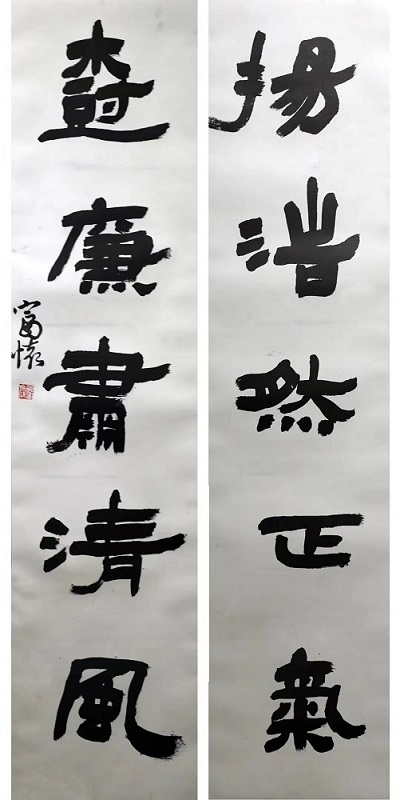 揚浩然正氣
樹廉肅清風
富懷